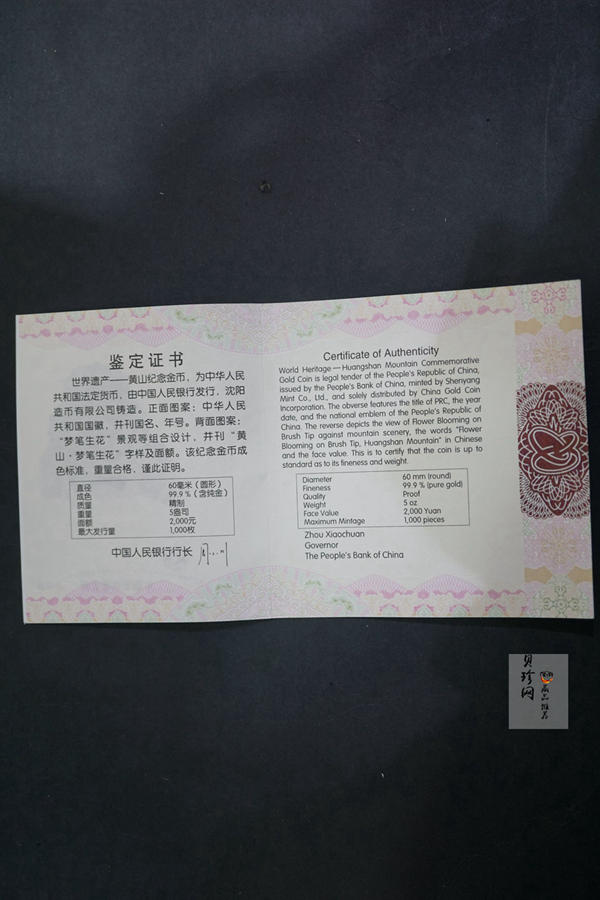 鉴定证书
世界遗产——黄山纪念金币，为中华人民
共和国法定货币，由中国人民银行发行，沈阳
造币有限公司铸造。正面图案：中华人民
共和国国徽，并刊国名、年号。背面图案：
“梦笔生花”景观等组合设计，并刊“黄
山·梦笔生花”字样及面额。该纪念金币成
色标准，重量合格，谨此证明。
直径 60毫米（圆形）
成色 99.9％（含纯金）
质量 精制
重量 5盎司
面额 2,000元
最大发行量 1,000枚
中国人民银行行长
Certificate of Authenticity
World Heritage — Huangshan Mountain Commemorative
Gold Coin is legal tender of the People's Republic of China,
issued by the People's Bank of China, minted by Shenyang
Mint Co., Ltd., and solely distributed by China Gold Coin
Incorporation. The obverse features the title of PRC, the year
date, and the national emblem of the People's Republic of
China. The reverse depicts the view of Flower Blooming on
Brush Tip against mountain scenery, the words "Flower
Blooming on Brush Tip, Huangshan Mountain" in Chinese
and the face value. This is to certify that the coin is up to
standard as to its fineness and weight.
Diameter 60 mm (round)
Fineness 99.9 % (pure gold)
Quality Proof
Weight 5 oz
Face Value 2,000 Yuan
Maximum Mintage 1,000 pieces
Zhou Xiaochuan
Governor
The People's Bank of China
贝珍网
藏品推荐